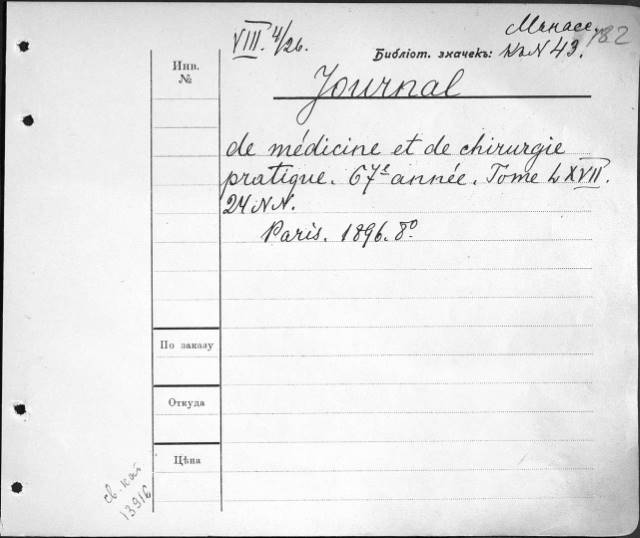 VIII. 4/26.
Манасс. 182
Библіот. значекъ: №N 43.
Инв.
№
Journal
de médicine et de chirurgie
pratique. 67ᵉ année. Tome LXVII.
24 NN.
Paris. 1896. 8º.
По заказу
Откуда
Цѣна
св. кат
13916